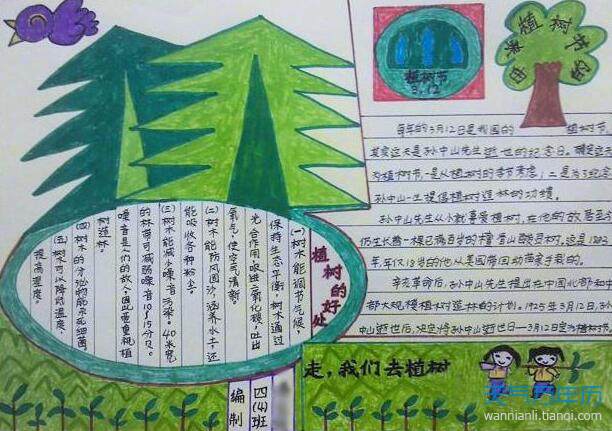 植树节
3.12
植树节
每年的3月12日是我国的
植树节
其实这天是孙中山先生逝世的纪念日。确定这天
为植树节,一是从植树的季节考虑,二是为了纪念
孙中山一生提倡植树造林的功绩。
孙中山先生从小就喜爱植树,在他的故居至
仍生长着一棵已满百岁的檀香山酸豆树。这是1883
年,年仅18岁的他从美国带回幼苗亲手栽的。
辛亥革命后,孙中山先生提出在中国北部和中
部大规模植树造林的计划。1925年3月12日,孙
中山逝世后,决定将孙中山逝世日—3月12日定为植树节。
植树的好处
(一)树木能调节气候,
保持生态平衡。树木通过
光合作用,吸进二氧化碳,吐出
氧气,使空气清新。
(二)树木能防风固沙,涵养水土,还
能吸收各种粉尘。
(三)树木能减少噪音污染。40米宽
的林带可减弱噪音10~15分贝。
噪音是人们的敌人,因此要重视植
树造林。
(四)树木的分泌物能杀死细菌。
(五)树木可以降低温度,
提高湿度。
走,我们去植树
四(4)班
编制
天气万年历
wannianli.tianqi.com